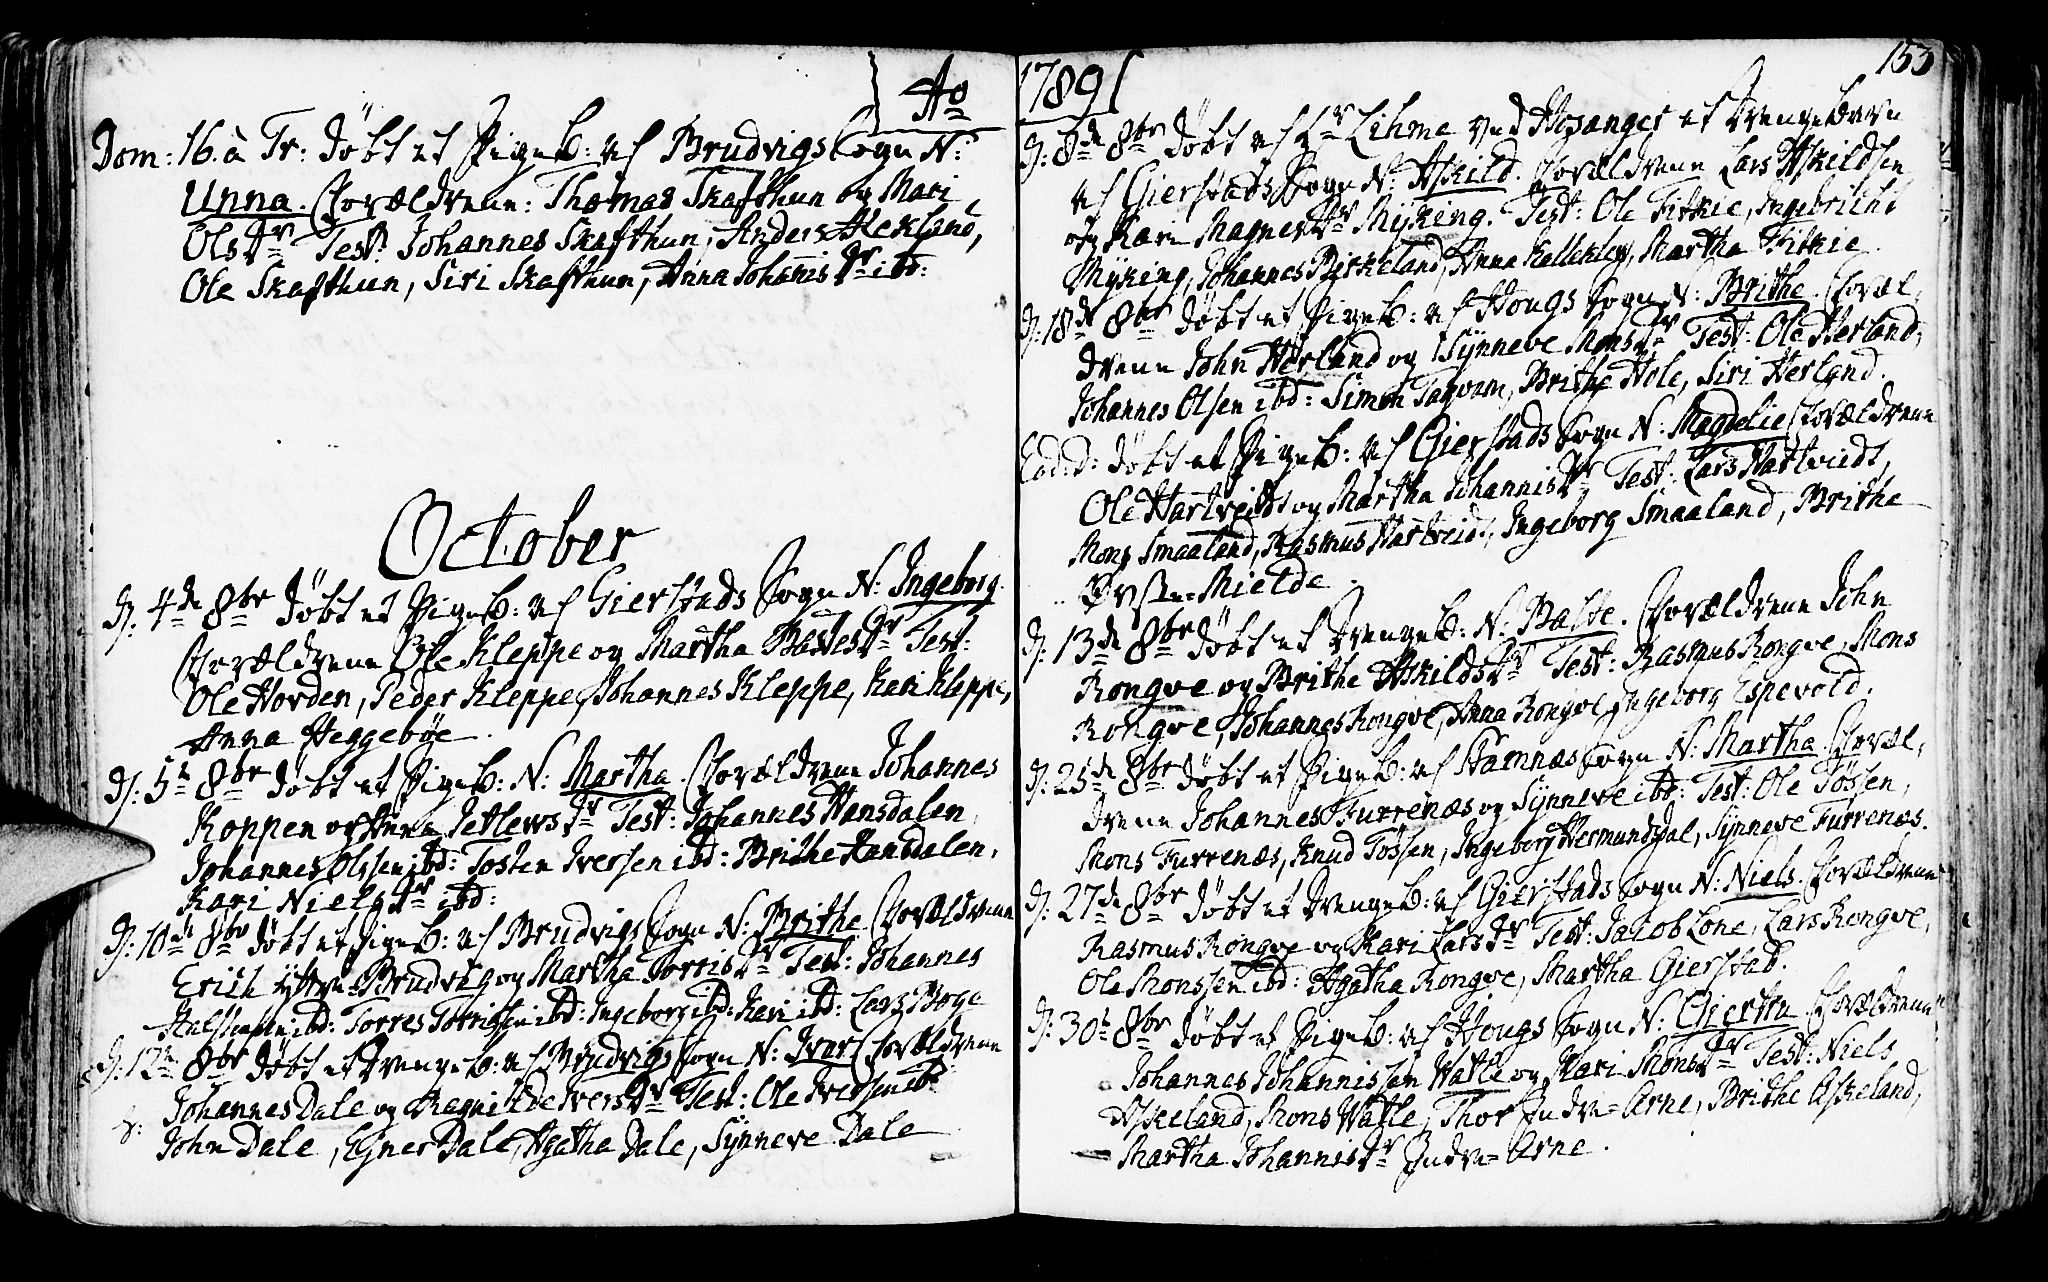 Ao
Dom: 16. à Tr: döbt et PigeB: af Brudvigs Sogn N:
Unna. Forældrene: Thomas Skafthun og Mari
OlsDr Test: Johannes Skafthun, Anders Hekland,
Ole Skafthun, Siri Skafthun, Anna JohannisDr ibd:
October
D: 4de 8br döbt et PigeB: af Gierstads Sogn N: Ingeborg.
Forældrene Ole Kleppe og Martha BaltesDr Test:
Ole Horden, Peder Kleppe, Johannes Kleppe, Kari Kleppe,
Anna Heggeböe.
D: 5te 8br döbt et PigeB: N: Martha. Forældrene Johannes
Koppen og Anna DetlewsDr Test: Johannes Hansdalen,
Johannes Olssen ibd: Tosten Iversen ibd: Brithe Hansdalen,
Kari NielsDr ibd:
D: 10de 8br döbt et PigeB: af Brudvigs Sogn N: Brithe Forældrene
Erich yttre-Brudvig og Martha TorrisDr Test: Johannes
ibd: Torres Torrissen ibd: Ingeborg ibd: Kari ibd: Lars Boge
D: 12te 8br döbt et DrengeB: af Brudvigs Sogn N: Ivar Forældrene
Johannes Dale og Ragnilde IversDr Test: Ole Iversen ibd:
John Dale, Egner Dale, Agatha Dale, Synneve Dale
1789
153
D: 8de 8br döbt af Hr Lihme ved Hosanger et Drengebarn
af Gierstads Sogn N: Askild. Forældrene Lars Askildsen
og Kari MagnesDr Myking. Test: Ole Fitkie, Ingebricht
Myking, Johannes Birkeland, Anna Kallekley, Martha Fitkie.
D: 18de 8br döbt et PigeB: af Hougs Sogn N: Brithe. Foræl,
drene John Herland og Synneve MonsDr Test: Ole Herland,
Johannes Olsen ibd: Simon Taqvam, Brithe Hole, Siri Herland.
Eod: d: döbt et PigeB: af Gierstads Sogn N: Magdelie Forældrene
Ole Hartveidt og Martha JohannisDr Test: Lars Hartveidt,
Mons Smaaland, Rasmus Hartveidt, Ingeborg Smaaland, Brithe
Øvste-Mielde.
D: 13de 8br döbt et DrengeB: N: Balte. Forældrene John
Rongve og Brithe AskildsDr Test: Rasmus Rongve, Mons
Rongve, Johannes Rongve, Anna Rongve, Ingeborg Espevold.
D: 25de 8br döbt et PigeB: af Stamnæs Sogn N: Martha. Foræl,
drene Johannes Furrenæs og Synneve ibd: Test: Ole Tössen,
Mons Furrenæs, Knud Tössen, Ingeborg Hermundsdal, Synneve Furrenæs.
D: 27de 8br döbt et DrengeB: af Gierstads Sogn N: Niels. Forældrene
Rasmus Rongve og Kari LarsDr Test: Jacob Lone, Lars Rongve,
Ole Monssen ibd: Agatha Rongve, Martha Gierstad.
D: 30te 8br döbt et PigeB: af Hougs Sogn N: Giertru Forældrene
Johannes Johannissen Watle og Kari MonsDr Test: Niels
Askeland, Mons Watle, Thor Indre-Arne, Brithe Askeland,
Martha JohannisDr Indre-Arne.